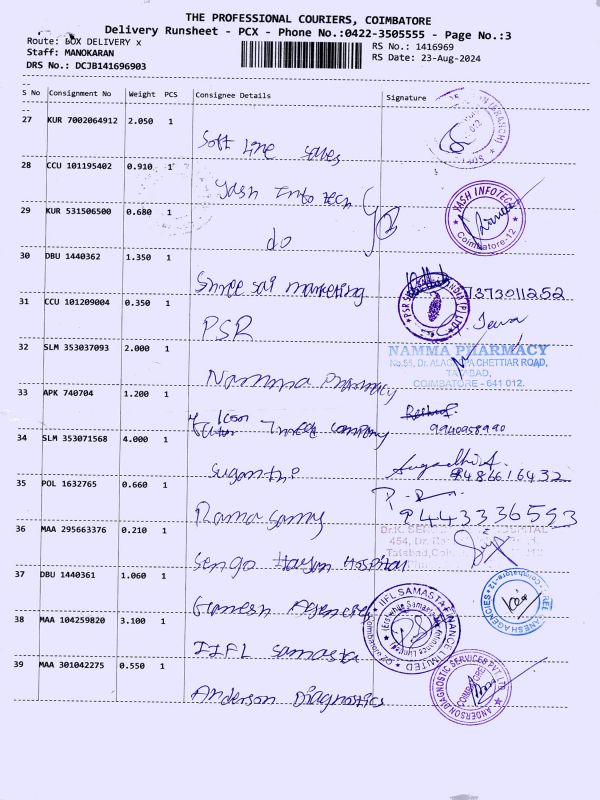 THE PROFESSIONAL COURIERS, COIMBATORE
Delivery Runsheet - PCX - Phone No.:0422-3505555 - Page No.:3
Route: BOX DELIVERY x
RS No.: 1416969
Staff: MANOKARAN
RS Date: 23-Aug-2024
DRS No.: DCJB141696903
S No Consignment No Weight PCS Consignee Details Signature
27 KUR 7002064912 2.050 1
Soft Line sales
28 CCU 101195402 0.910 1
Yash Info tech
YASH INFOTECH
Coimbatore-12
29 KUR 531506500 0.680 1
do
30 DBU 1440362 1.350 1
Shree sai marketing
7373011252
31 CCU 101209004 0.350 1
PSR
32 SLM 353037093 2.000 1
NAMMA PHARMACY
CHETTIAR ROAD,
TATABAD,
COIMBATORE - 641 012.
Namma Pharmacy
33 APK 740704 1.200 1
Icon
company
9940958990
34 SLM 353071568 4.000 1
Sugantha
9486616432
35 POL 1632765 0.660 1
Rama samy
9443336593
36 MAA 295663376 0.210 1
Hospital
37 DBU 1440361 1.060 1
Ganesh Agencies
38 MAA 104259820 3.100 1
IIFL SAMASTA FINANCE LIMITED
IIFL samasta
39 MAA 301042275 0.550 1
ANDERSON DIAGNOSTIC SERVICES PVT LTD
Anderson Diagnostics